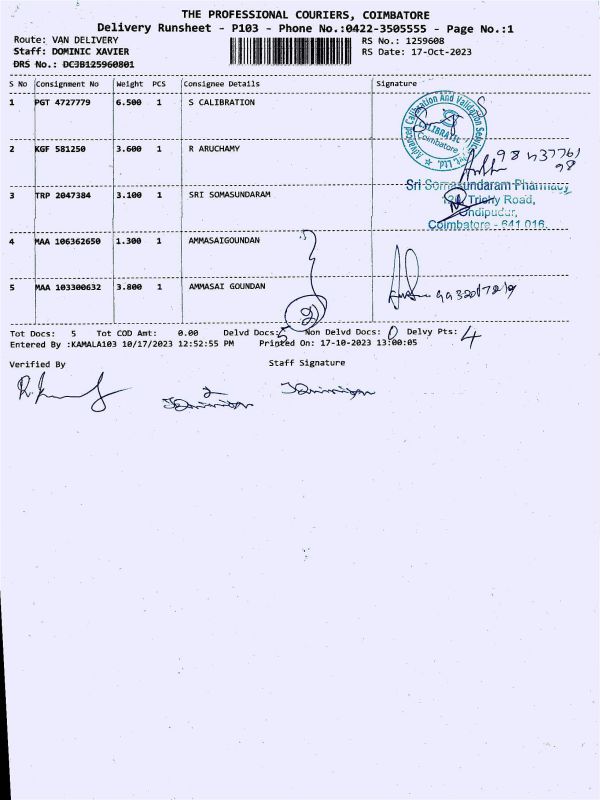 THE PROFESSIONAL COURIERS, COIMBATORE
Delivery Runsheet - P103 - Phone No.:0422-3505555 - Page No.:1
Route: VAN DELIVERY
RS No.: 1259608
Staff: DOMINIC XAVIER
RS Date: 17-Oct-2023
DRS No.: DC3B125960801
S No Consignment No Weight PCS Consignee Details Signature
1 PGT 4727779 6.500 1 S CALIBRATION
Advanced Calibration And Validation Service Pvt. Ltd.
CALIBRATIC
Coimbatore
2 KGF 581250 3.600 1 R ARUCHAMY
98
3 TRP 2047384 3.100 1 SRI SOMASUNDARAM
Sri Somasundaram Pharmacy
Trichy Road,
Ondipudur,
Coimbatore - 641 016.
4 MAA 106362650 1.300 1 AMMASAIGOUNDAN
5 MAA 103300632 3.800 1 AMMASAI GOUNDAN
2
Tot Docs: 5 Tot COD Amt: 0.00 Delvd Docs: 5 Non Delvd Docs: 0 Delvy Pts: 4
Entered By :KAMALA103 10/17/2023 12:52:55 PM Printed On: 17-10-2023 13:00:05
Verified By Staff Signature